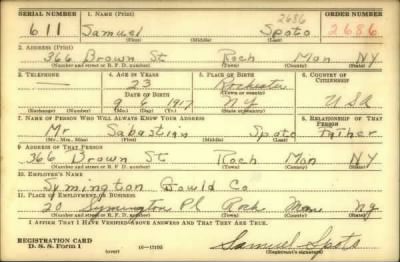 SERIAL NUMBER 1. NAME (Print) 2686 ORDER NUMBER
611 Samuel Spoto 2686
(First) (Middle) (Last)
2. ADDRESS (Print)
366 Brown St Roch Mon NY
(Number and street or R. F. D. number) (Town) (County) (State)
3. TELEPHONE 4. AGE IN YEARS 5. PLACE OF BIRTH 6. COUNTRY OF CITIZENSHIP
— 23 Rochester
DATE OF BIRTH (Town or county)
9 6 1917 NY USA
(Exchange) (Number) (Mo.) (Day) (Yr.) (State or country)
7. NAME OF PERSON WHO WILL ALWAYS KNOW YOUR ADDRESS 8. RELATIONSHIP OF THAT PERSON
Mr. Sabastian Spoto Father
(Mr., Mrs., Miss) (First) (Middle) (Last)
9. ADDRESS OF THAT PERSON
366 Brown St Roch Mon NY
(Number and street or R. F. D. number) (Town) (County) (State)
10. EMPLOYER'S NAME
Symington Gould Co
11. PLACE OF EMPLOYMENT OR BUSINESS
20 Symington Pl Roch Mon Ny
(Number and street or R. F. D. number) (Town) (County) (State)
I AFFIRM THAT I HAVE VERIFIED ABOVE ANSWERS AND THAT THEY ARE TRUE.
REGISTRATION CARD
D. S. S. Form 1 (over) 16—17105 Samuel Spoto
(Registrant's signature)